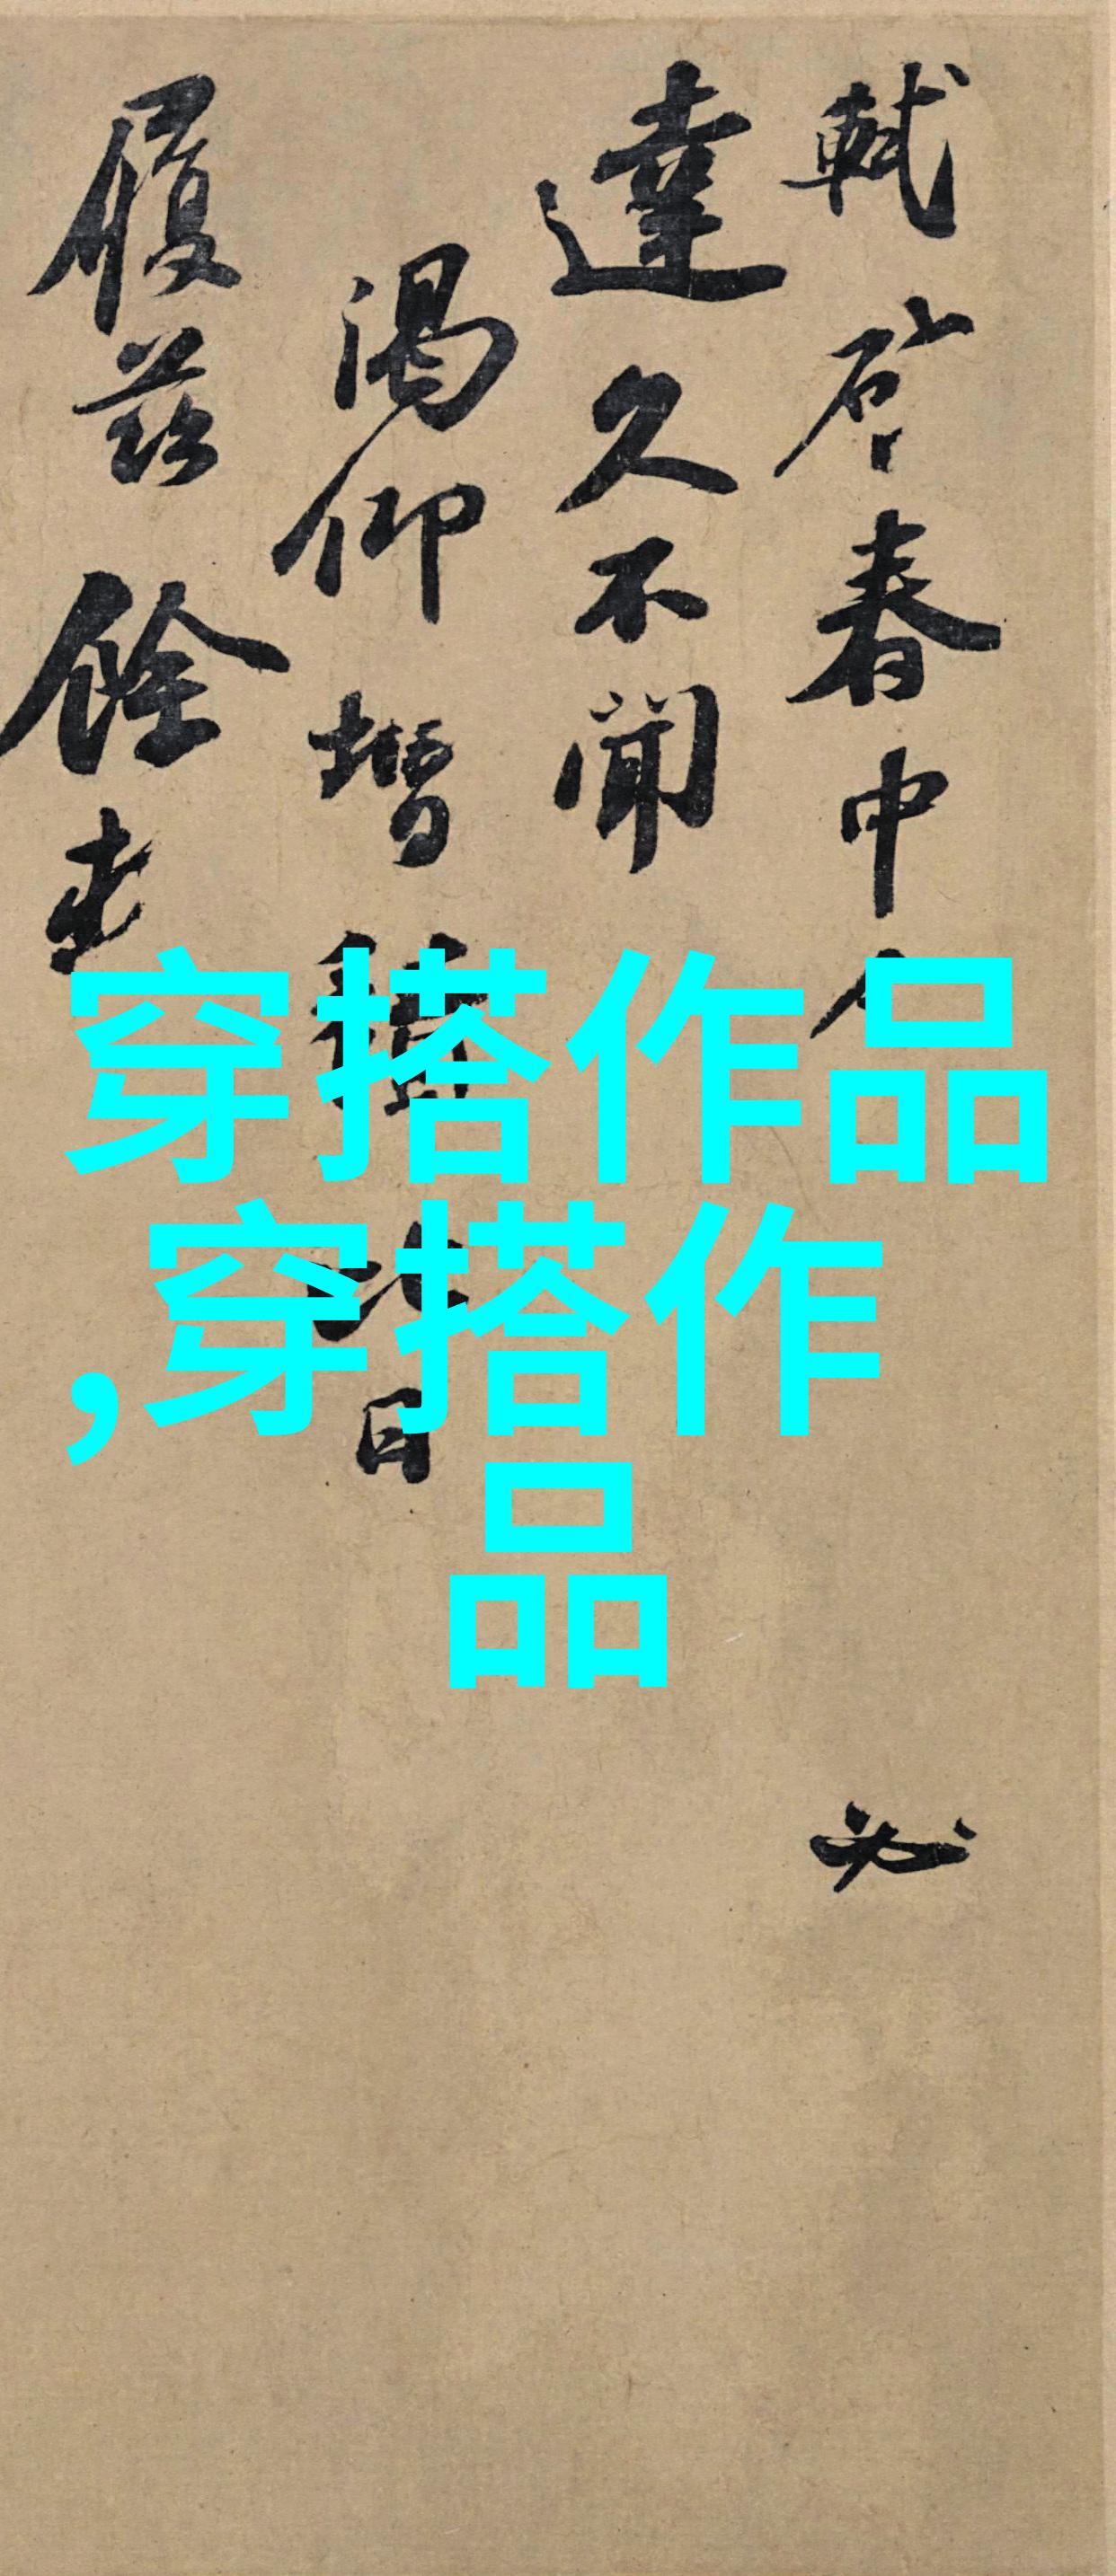 軾啓春中
必
達久不聞
渴仰增
日
履茲餘
穿搭作品
,穿搭作
品